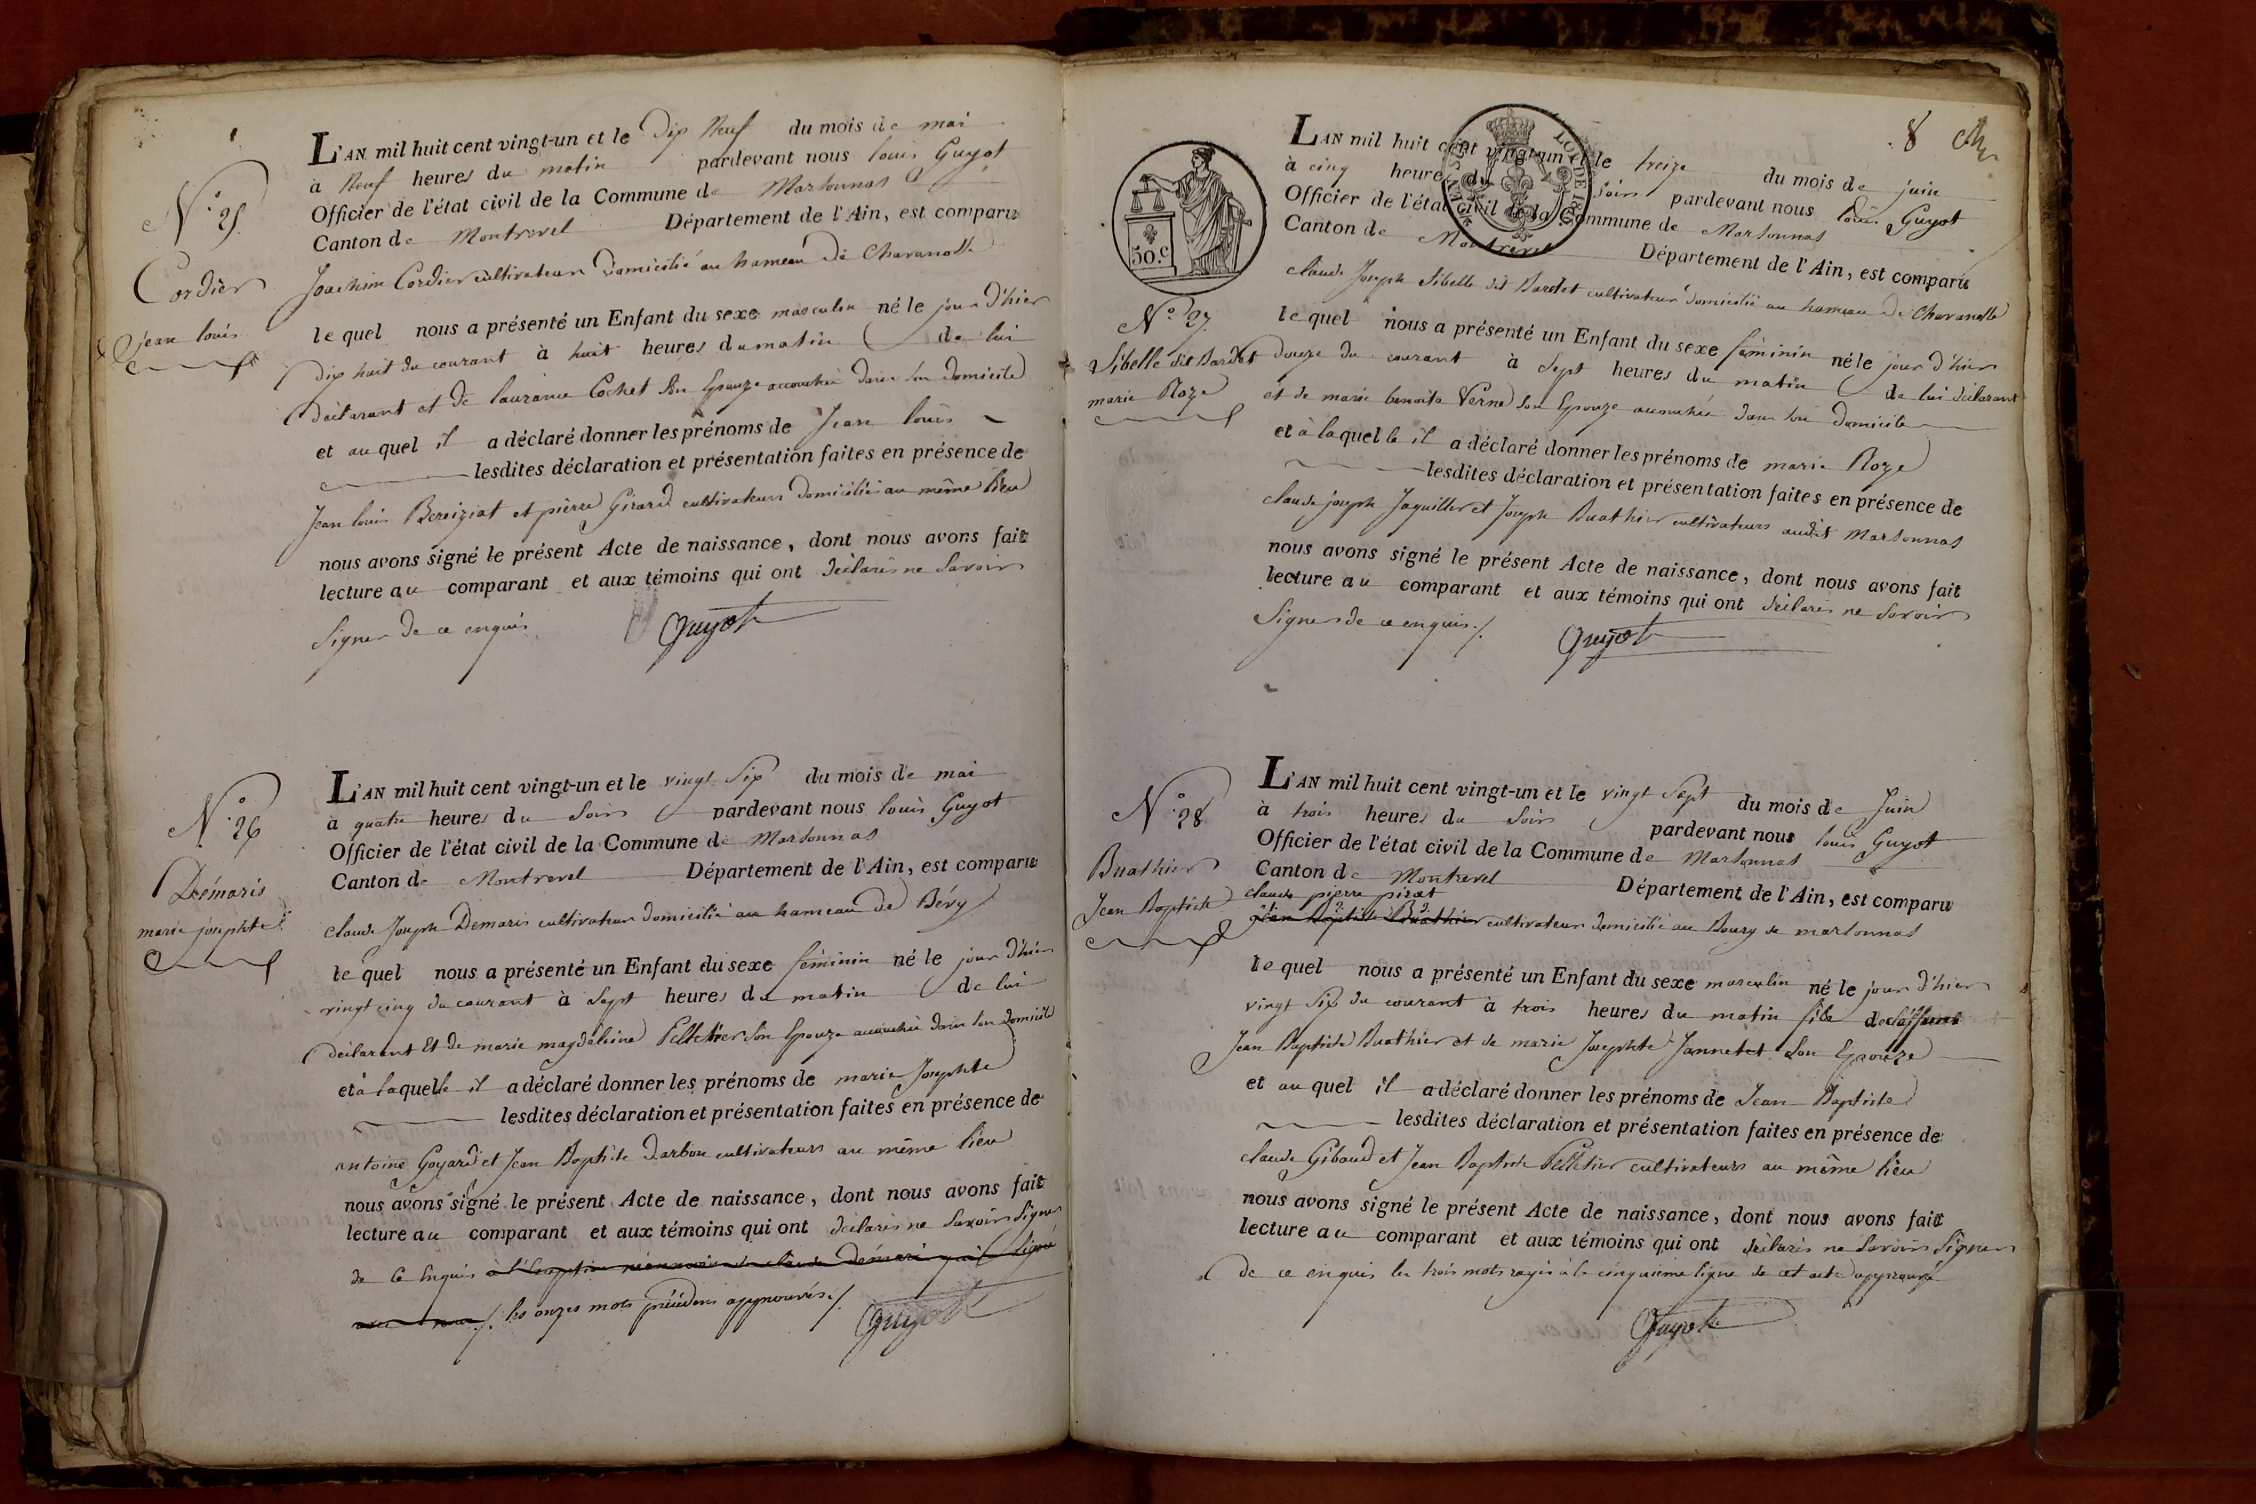 N.° 25
Cordier
jean louis
L'AN mil huit cent vingt-un et le Dix Neuf du mois de mai
à Neuf heures du matin pardevant nous louis Guyot
Officier de l'état civil de la Commune de Marsonnas
Canton de Montrevel Département de l'Ain, est comparu
Joachim Cordier cultivateur Domicilié au hameau De Chavanolle
le quel nous a présenté un Enfant du sexe masculin né le jour d'hier
dix huit du courant à huit heures du matin de lui
déclarant et de laurance Cochet Son Epouze accouchée dans son domicile
et au quel il a déclaré donner les prénoms de Jean louis
lesdites déclaration et présentation faites en présence de
Jean louis Bereiziat et pierre Girard cultivateurs domiciliés au même lieu
nous avons signé le présent Acte de naissance, dont nous avons fait
lecture au comparant et aux témoins qui ont déclarés ne Savoir
Signer de ce enquis
Guyot
N.° 26
Démaris
marie josephte
L'AN mil huit cent vingt-un et le vingt Six du mois de mai
à quatre heures du Soir pardevant nous louis Guyot
Officier de l'état civil de la Commune de Marsonnas
Canton de Montrevel Département de l'Ain, est comparu
claude Joseph Demaris cultivateur domicilié au hameau de Bévy
le quel nous a présenté un Enfant du sexe féminin né le jour d'hier
vingt cinq du courant à Sept heures du matin de lui
déclarant Et de marie magdeleine Pelletier Son Epouze accouchée dans son domicile
et à laquelle il a déclaré donner les prénoms de marie Josephte
lesdites déclaration et présentation faites en présence de
antoine Goyard et Jean Baptiste Darbon cultivateurs au même lieu
nous avons signé le présent Acte de naissance, dont nous avons fait
lecture au comparant et aux témoins qui ont déclarés ne Savoir Signer
de Ce Enquis à l'Exception de claude Démari qui a Signé
avec nous ./. les onzes mots précédens approuvés ./.
Guyot
8
50.C
LOI DE 18
N.° 27
Sibelle dit Bardet
marie Roze
L'AN mil huit cent vingt-un et le treize du mois de juin
à cinq heures du Soir pardevant nous louis Guyot
Officier de l'état civil de la Commune de Marsonnas
Canton de Montrevel Département de l'Ain, est comparu
claude Joseph Sibelle dit Bardet cultivateur domicilié au hameau de Chavanolle
le quel nous a présenté un Enfant du sexe féminin né le jour d'hier
douze du courant à Sept heures du matin de lui déclarant
et de marie benoite Verne Son Epouze accouchée dans son domicile
et à laquelle il a déclaré donner les prénoms de marie Roze
lesdites déclaration et présentation faites en présence de
claude joseph Jaquiller et Joseph Buathier cultivateurs audit Marsonnas
nous avons signé le présent Acte de naissance, dont nous avons fait
lecture au comparant et aux témoins qui ont déclarés ne Savoir
Signer de ce enquis ./.
Guyot
N.° 28
Buathier
Jean Baptiste
L'AN mil huit cent vingt-un et le vingt Sept du mois de Juin
à trois heures du Soir pardevant nous louis Guyot
Officier de l'état civil de la Commune de Marsonnas
Canton de Montrevel Département de l'Ain, est comparu
claude pierre pirat
Jean Baptiste Buathier cultivateur domicilié au Bourg de marsonnas
le quel nous a présenté un Enfant du sexe masculin né le jour d'hier
vingt Six du courant à trois heures du matin fils de
Jean Baptiste Buathier et de marie Josephte Jannetet Son Epouze
et au quel il a déclaré donner les prénoms de Jean Baptiste
lesdites déclaration et présentation faites en présence de
claude Giboud et Jean Baptiste Pelletier cultivateurs au même lieu
nous avons signé le présent Acte de naissance, dont nous avons fait
lecture au comparant et aux témoins qui ont déclarés ne Savoir Signer
de ce enquis les trois mots rayés à la cinquieme ligne de cet acte approuvé
Guyot